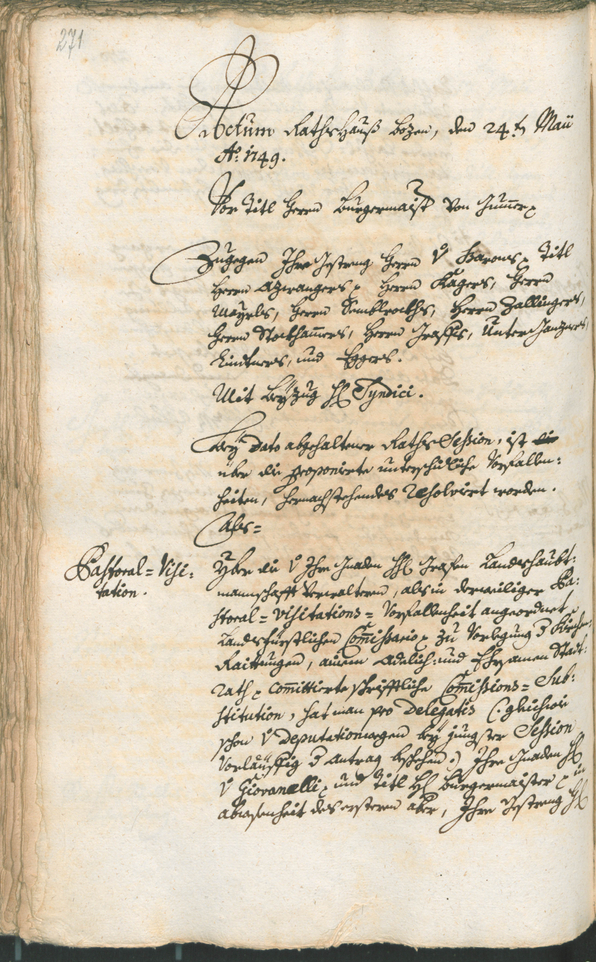 271
Actum Rathshauß Bozen, den 24.t Maii
Aõ. 1749.
Vor Titl Herrn Burgermaist. von
Zugegen Ihro Gestreng Herrn V. Titl
Herrn Azwangers, Herrn Kagers, Herrn
Mayrls, Herrn Herrn Zallingers,
Herrn Stockhamers, Herrn Graffs,
Lindtners, und Eggers.
Mit Beyzug H. Syndici.
Bey Dato abgehaltener Raths Session, ist
über die proponierte unterschidliche Vorfallen:
heiten, hernachstehendes resolvirt worden.
Als=
Pastoral=Visi:
tation.
Yber die V. Ihro Gnaden H. Grafen Landtshaubt:
mannschafft Verwaltern, als in derweiliger Pa:
storal=Visitations=Vorfallenheit angeordnet
Landtsfürstlichen Commissario, zu Vorlegung d. Kirchen
Raittungen, ainem Adelich: und Ehrsamen Statt:
rath committirte schrifftliche Commissions=Sub:
stitution, hat man pro Delegatis (: gleichwie
schon V. Deputation wegen bey jungster Session
Vorleuffig d. Antrag beschehen :) Ihro Gnaden H.
V. Giovanelli, und Titl H. Burgermaister, in
abwesenheit des ersteren aber, Ihro Gestreng H.